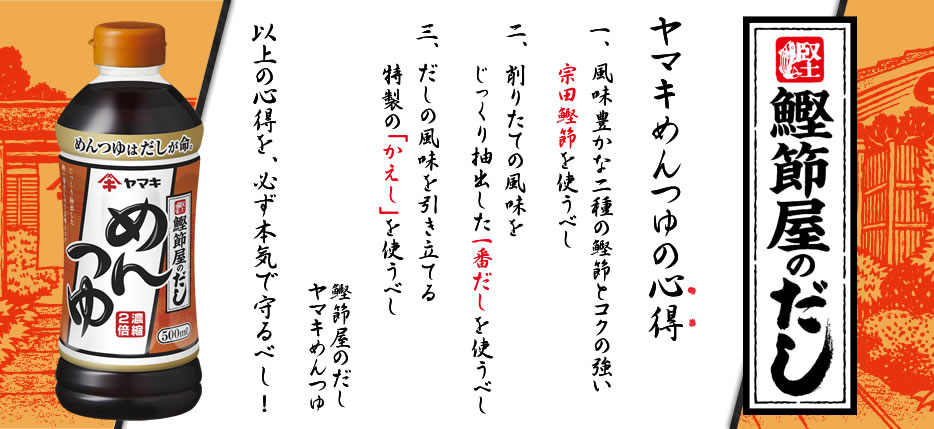 鰹節屋のだし
ヤマキめんつゆの心得
一、風味豊かな二種の鰹節とコクの強い
宗田鰹節を使うべし
二、削りたての風味を
じっくり抽出した一番だしを使うべし
三、だしの風味を引き立てる
特製の「かえし」を使うべし
以上の心得を、必ず本気で守るべし！
鰹節屋のだし
ヤマキめんつゆ
めんつゆはだしが命。
ヤマキ
鰹節屋のだし
めんつゆ
濃縮2倍
500ml